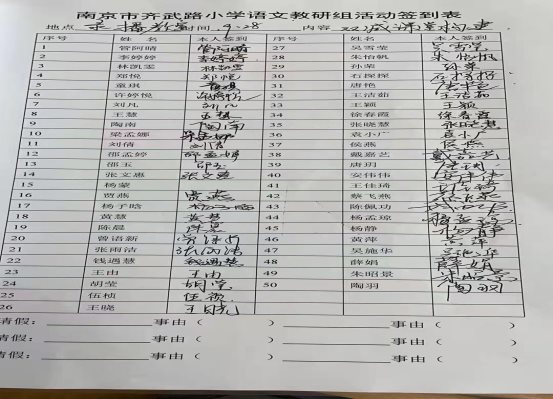 南京市齐武路小学语文教研组活动签到表
地点 录播教室 时间 9.28 内容 双减课堂构建
序号 姓名 本人签到 序号 姓名 本人签到
1 管阿晴 管阿晴 27 吴雪莹 吴雪莹
2 李婷婷 李婷婷 28 朱怡帆 朱怡帆
3 林凯雯 林凯雯 29 孙荣 孙荣
4 郑悦 郑悦 30 石探探
5 童琪 童琪 31 唐艳 唐艳
6 许婷悦 许婷悦 32 王洁茹 王洁茹
7 刘凡 刘凡 33 王颖 王颖
8 王慧 王慧 34 徐春霞 徐春霞
9 陶南 陶南 35 张晓慧 张晓慧
10 梁孟娜 梁孟娜 36 袁小广 袁小广
11 刘倩 刘倩 37 侯燕 侯燕
12 邵孟婷 邵孟婷 38 戴嘉艺 戴嘉艺
13 邵玉 邵玉 39 唐玥 唐玥
14 张文惠 张文惠 40 安伟伟 安伟伟
15 杨蒙 41 王佳琦 王佳琦
16 贾燕 贾燕 42 蔡飞燕 蔡飞燕
17 杨子晗 杨子晗 43 陈佩功
18 黄慧 黄慧 44 杨孟琼 杨孟琼
19 陈晨 陈晨 45 杨静 杨静
20 曾语新 曾语新 46 黄萍 黄萍
21 张雨洁 张雨洁 47 吴施华
22 钱遇慧 钱遇慧 48 薛娟 薛娟
23 王由 王由 49 朱昭景 朱昭景
24 胡莹 胡莹 50 陶羽 陶羽
25 伍桢 伍桢
26 王晓
请假： 事由（ ） 事由（ ）
请假： 事由（ ） 事由（ ）
请假： 事由（ ） 事由（ ）